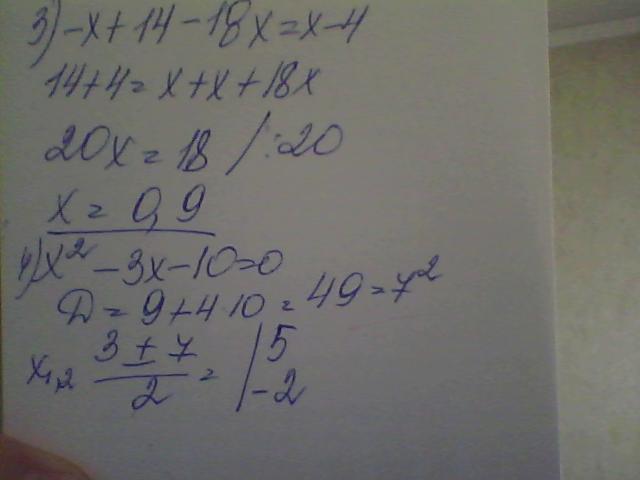 3) -x+14-18x=x-4
14+4=x+x+18x
20x=18 /:20
x=0,9
4) x²-3x-10=0
D=9+4·10=49=7²
x₁,₂ (3±7)/2 = | 5
-2